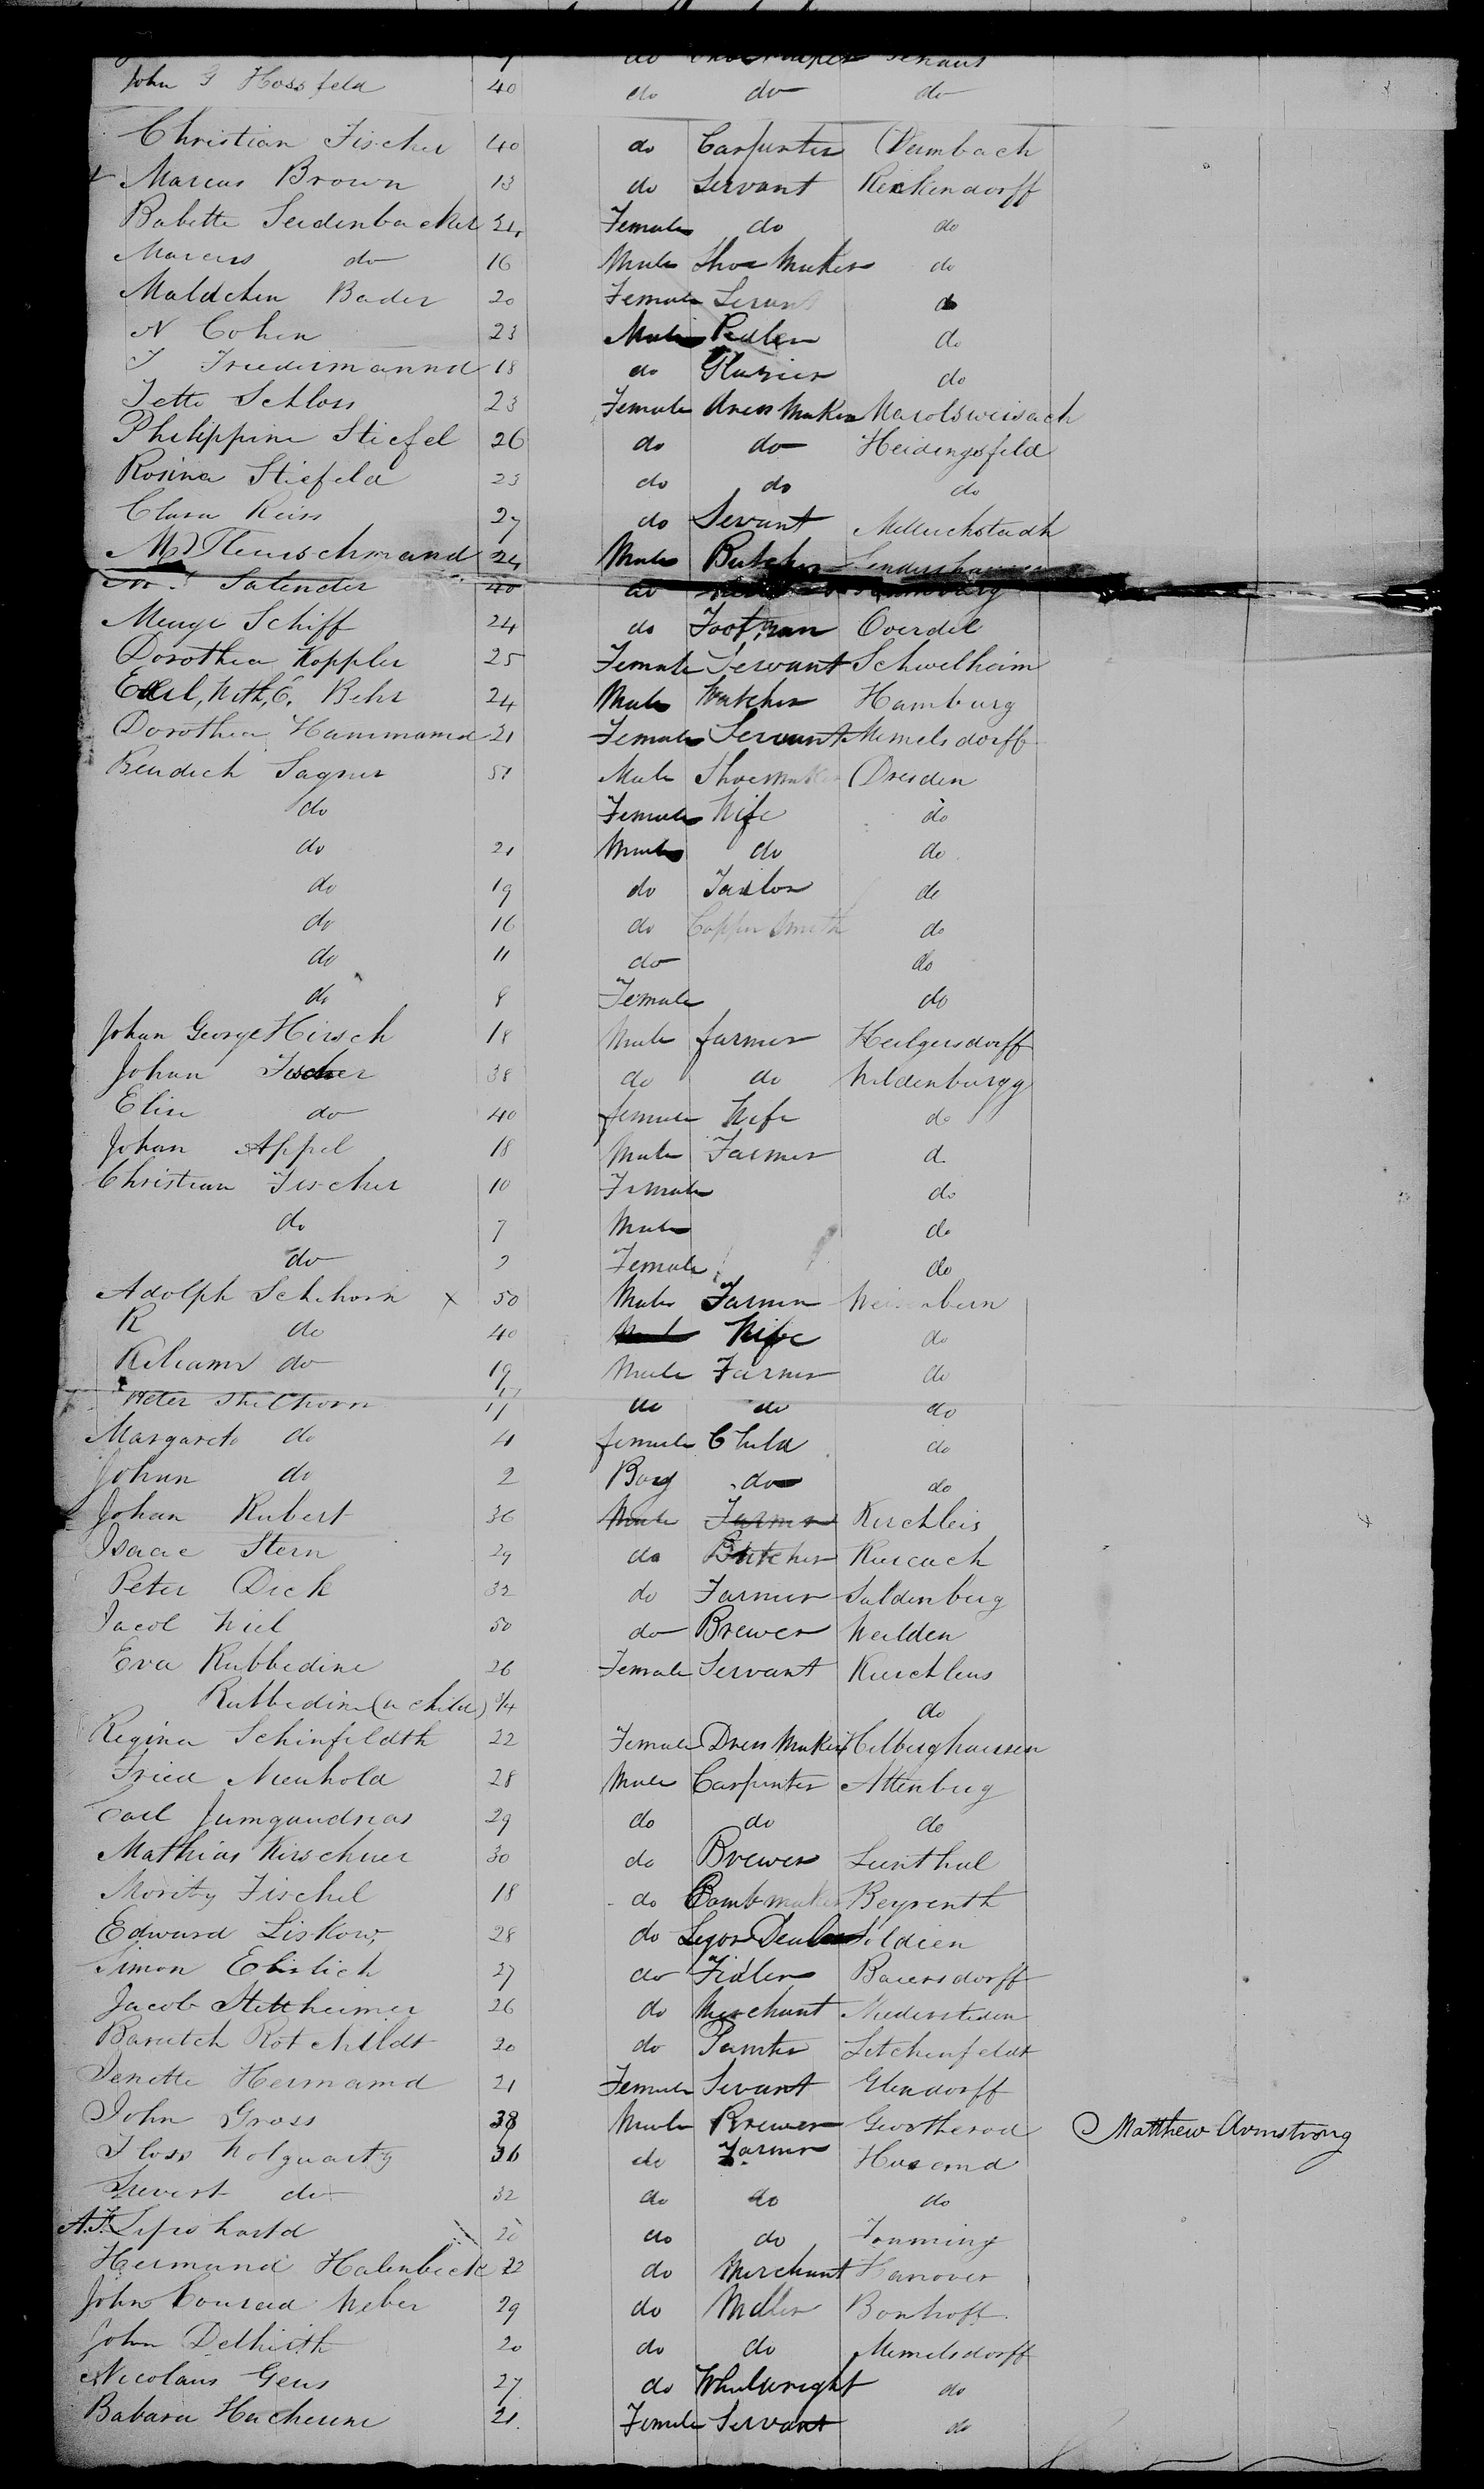 John G Hossfeld 40 do do do
Christian Fischer 40 do Carpenter Dermbach
Marcus Brown 13 do Servant Reckendorff
Babette Seidenbacker Female do do
Marcus do 16 Male Shoe Maker do
Maldchen Bader 20 Female Servant do
N Cohen 23 Male Pedler do
J Friedermannd 18 do Glazier do
Jette Schloss 23 Female dress Maker Marolsweisach
Philippine Stiefel 26 do do Heidengsfeld
Rosina Stiefeld 23 do do do
Clara Reiss 27 do Servant Mellrichstadh
24 Male Butcher
Salender 40 do
Schiff 24 do Footman Overdel
Dorothea Koppler 25 Female Servant Schwelheim
Behr 24 Male Hamburg
Dorothea Hammamd 21 Female Servant Memelsdorff
Bendich Sagner 51 Male Shoemaker Dresden
do Female Wife do
do 21 Male do do
do 19 do Tailor do
do 16 do Copper Smith do
do 11 do do
do 8 Female do
Johan George Hirsch 18 Male farmer Heilgersdorff
Johan Fischer 38 do do Wildenburgg
Elise do 40 female Wife do
Johan Appel 18 Male Farmer d
Christian Fischer 10 Female do
do 7 Male do
do 2 Female do
Adolph Schihorn x 50 Male Farmer
R do 40 Wife do
Kiliam do 19 Male Farmer do
Peter 11 do do do
Margareta do 4 female Child do
Johan do 2 Boy do do
Johan Rubert 36 Male Farmer Kirchleis
Isaac Stern 29 do Butcher
Peter Dick 32 do Farmer Saldenburg
Jacob Wiel 50 do Brewer Weilden
Eva Rubbedine 26 Female Servant Kirchleus
Rubbedine (a child) 3/4 do
Regina Schinfeldth 22 Female Dress Maker Hilburghaussen
Fried Nienhold 28 Male Carpenter Attenburg
Carl Jumgandreas 29 do do do
Mathias Kirschner 30 do Brewer Lunthal
Moritz Fischel 18 do Comb maker Beyrenth
Edward Liskow 28 do Segar Dealer Soldien
Simon Ehrlich 27 do Baiersdorff
Jacob Stettheimer 26 do Merchant Niedersteden
Barutch Rotchildt 20 do Painter Litchenfeldt
Jenette Hermamd 21 Female Servant Glendorff
John Gross 38 Male Brewer Matthew Armstrong
36 do Farmer Husamd
do 32 do do do
20 do do Tonning
Hermand Halenbeck 22 do Merchant Hanover
John Conrad Weber 29 do Miller Bonhoff
John Delhirth 20 do do Memelsdorff
Nicolaus Geus 27 do Wheelwright do
Babara Hacheine 21 Female Servant do